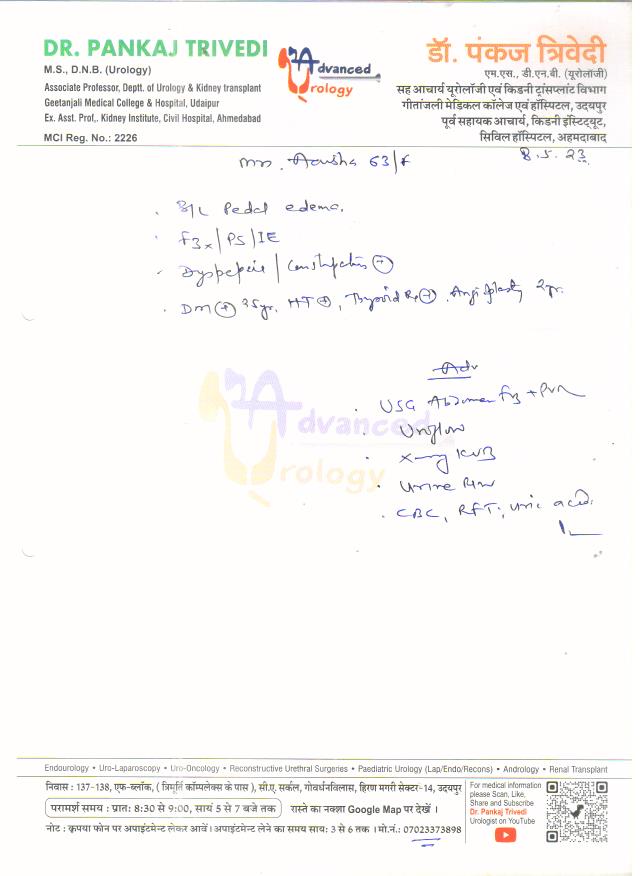 DR. PANKAJ TRIVEDI
M.S., D.N.B. (Urology)
Associate Professor, Deptt. of Urology & Kidney transplant
Geetanjali Medical College & Hospital, Udaipur
Ex. Asst. Prof,. Kidney Institute, Civil Hospital, Ahmedabad
MCI Reg. No.: 2226
Advanced
Urology
डॉ. पंकज त्रिवेदी
एम.एस., डी.एन.बी. (यूरोलॉजी)
सह आचार्य यूरोलॉजी एवं किडनी ट्रांसप्लांट विभाग
गीतांजली मेडिकल कॉलेज एवं हॉस्पिटल, उदयपुर
पूर्व सहायक आचार्य, किडनी इंस्टिट्यूट,
सिविल हॉस्पिटल, अहमदाबाद
63/f
8.5.23
B/L Pedal edema.
Dyspepsia / Constipation +
DM + 35yr. HT +, Thyroid Rx + . Angioplasty 2yr.
Adv
Advanced
Urology
USG Abdomen + PVR
Uroflow
X-ray KUB
Urine R/M
CBC, RFT, uric acid.
Endourology • Uro-Laparoscopy • Uro-Oncology • Reconstructive Urethral Surgeries • Paediatric Urology (Lap/Endo/Recons) • Andrology • Renal Transplant
निवास : 137-138, एफ-ब्लॉक, ( त्रिमूर्ति कॉम्पलेक्स के पास ), सी.ए. सर्कल, गोवर्धनविलास, हिरण मगरी सेक्टर-14, उदयपुर
परामर्श समय : प्रातः 8:30 से 9:00, सायं 5 से 7 बजे तक रास्ते का नक्शा Google Map पर देखें ।
नोट : कृपया फोन पर अपाइंटमेन्ट लेकर आवें। अपाइंटमेन्ट लेने का समय सायः 3 से 6 तक । मो.नं.: 07023373898
For medical information
please Scan, Like,
Share and Subscribe
Dr. Pankaj Trivedi
Urologist on YouTube